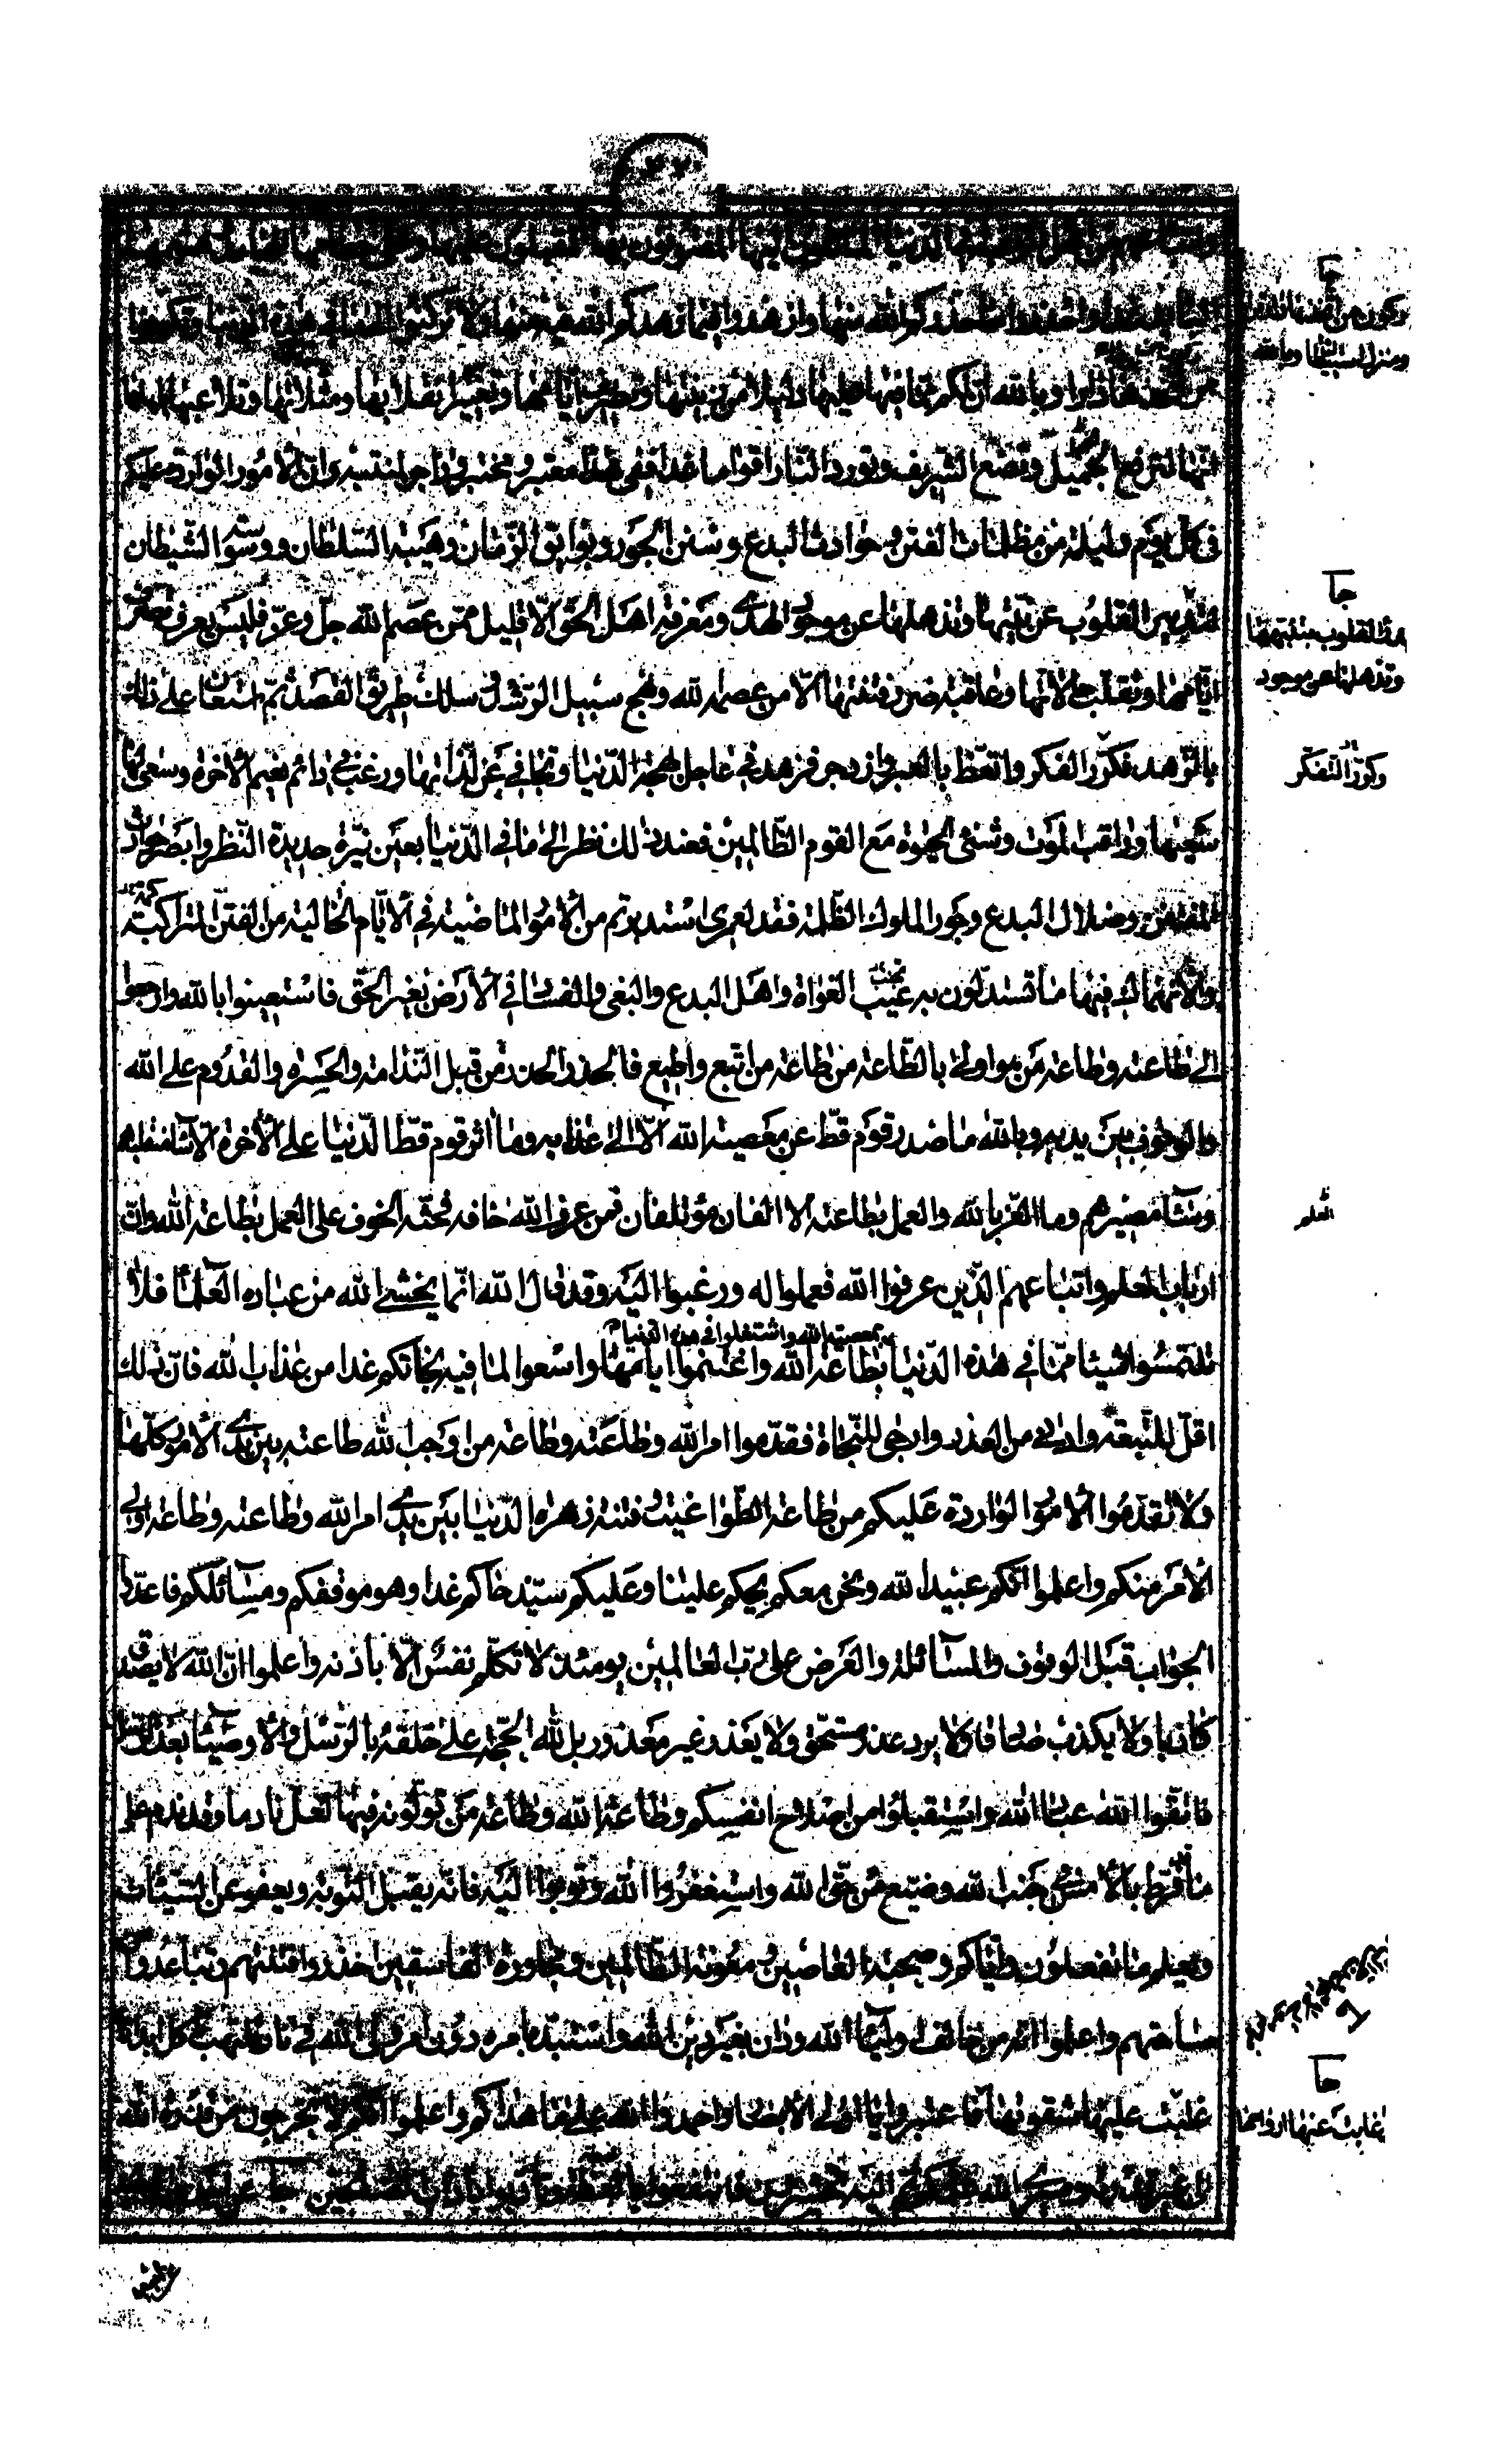 واتباعهم من اهل الرغبة في الدنيا المائلون اليها المفتونون بها المقبلون عليها وعلى حطامها الهامد وهشيمها
البائد غدا واحذروا ما حذركم الله منها وازهدوا فيما زهدكم الله فيه منها ولا تركنوا الى ما في هذه الدنيا ركون
من اتخذها دارا وبالله ان لكم مما فيها عليها دليلا من زينتها وتصرف ايامها وتغيير انقلابها ومثلاتها وتلاعبها باهلها
انها لترفع الجميل وتضع الشريف وتورد النار اقواما غدا ففي هذا معتبر ومختبر وزاجر لمنتبه وان الامور الواردة عليكم
في كل يوم وليلة من مظلمات الفتن وحوادث البدع وسنن الجور وبوائق الزمان وهيبة السلطان ووسوسة الشيطان
لتدرين القلوب عن نيتها وتذهلها عن موجود الهدى ومعرفة اهل الحق الا قليلا ممن عصم الله جل وعز فليس يعرف تصرف
ايامها وتقلب حالاتها وعاقبة ضرر فتنتها الا من عصمه الله ونهج سبيل الرشد وسلك طريق القصد ثم استعان على ذلك
بالزهد فكرر الفكر واتعظ بالعبر وازدجر فزهد في عاجل بهجة الدنيا وتجافى عن لذاتها ورغب في دائم نعيم الاخرة وسعى لها
سعيها وراقب الموت وشنئ الحيوة مع القوم الظالمين فعند ذلك نظر الى ما في الدنيا بعين نيرة حديدة النظر وابصر حوادث
الفتن وضلال البدع وجور الملوك الظلمة فقد لعمري استدبرتم من الامور الماضية في الايام الخالية من الفتن المتراكمة
والانهماك فيها ما تستدلون به على تجنب الغواة واهل البدع والبغي والفساد في الارض بغير الحق فاستعينوا بالله وارجعوا
الى طاعته وطاعة من هو اولى بالطاعة من طاعة من اتبع واطيع فالحذر الحذر من قبل الندامة والحسرة والقدوم على الله
والوقوف بين يديه وبالله ما صدر قوم قط عن معصية الله الا الى عذابه وما اثر قوم قط الدنيا على الاخرة الا ساء منقلبهم
وساء مصيرهم وما العز بالله والعمل بطاعته الا الفان مؤتلفان فمن عرف الله خافه فحثه الخوف على العمل بطاعة الله وان
ارباب العلم واتباعهم الذين عرفوا الله فعملوا له ورغبوا اليه وقد قال الله انما يخشى الله من عباده العلماء فلا
بمعصية الله واشتغلوا في هذه الدنيا
تلتمسوا شيئا مما في هذه الدنيا بطاعة الله واغتنموا ايامها واسعوا لما فيه نجاتكم غدا من عذاب الله فان ذلك
اقل للتبعة وادنى من العذر وارجى للنجاة فقدموا امر الله وطاعته وطاعة من اوجب الله طاعته بين يدي الامور كلها
ولا تقدموا الامور الواردة عليكم من طاعة الطواغيت وفتنة زهرة الدنيا بين يدي امر الله وطاعته وطاعة اولي
الامر منكم واعلموا انكم عبيد الله ونحن معكم يحكم علينا وعليكم سيد حاكم غدا وهو موقفكم ومسائلكم فاعدوا
الجواب قبل الوقوف والمسائلة والعرض على رب العالمين يومئذ لا تكلم نفس الا باذنه واعلموا ان الله لا يصدق
كاذبا ولا يكذب صادقا ولا يرد عذر مستحق ولا يعذر غير معذور بل لله الحجة على خلقه بالرسل والاوصياء بعد الرسل
فاتقوا الله عباد الله واستقبلوا من اصلاح انفسكم وطاعة الله وطاعة من تولونه فيها لعل نادما وقد ندم على
ما فرط بالامس في جنب الله وضيع من حق الله واستغفروا الله وتوبوا اليه فانه يقبل التوبة ويعفو عن السيئات
ويعلم ما تفعلون واياكم وصحبة العاصين ومعونة الظالمين ومجاورة الفاسقين احذروا فتنتهم وتباعدوا من
ساحتهم واعلموا انه من خالف اولياء الله ودان بغير دين الله واستبد بامره دون امر ولي الله في نار تلتهب تاكل ابدانا
غلبت عليها شقوتها فاعتبروا يا اولي الابصار واحمدوا الله على ما هداكم واعلموا انكم لا تخرجون من قدرة الله
الى غير قدرته وسيرى الله عملكم ثم اليه تحشرون فانتفعوا بالعظة وتادبوا باداب الصالحين
جا
ركون من اتخذها دار قرار
ومنزل استيطان وبالله
جا
القلوب عن تنبهها
وتذهلها عن موجود
وكرر التفكر
العلم
جا
غابت عنها ارواحها